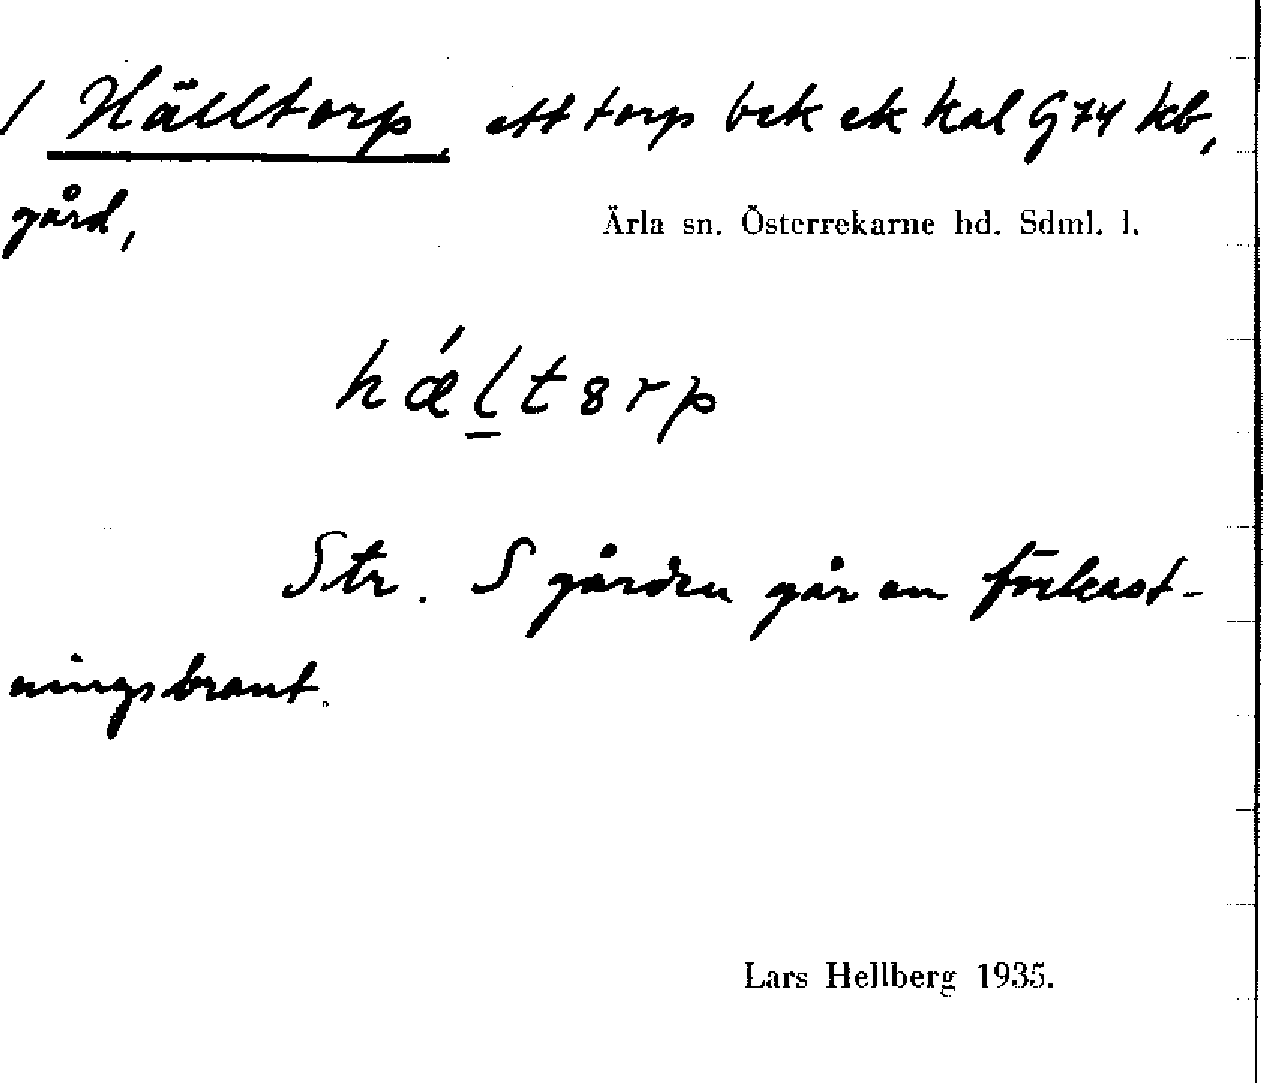 / Hälltorp, ett torp bek ek kal G 74 kb,
gård,
Ärla sn. Österrekarne hd. Sdml. l.
hǽl̲tȣrp
Str. S gården går en förkast-
ningsbrant.
Lars Hellberg 1935.